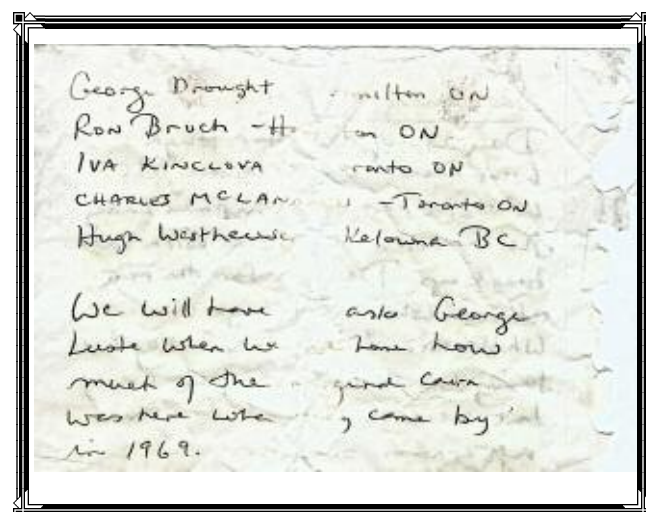 George Drought milton ON
RON Bruch - Ha on ON
IVA KINCLOVA ronto ON
CHARLES MCLAN - Toronto ON
Hugh Kelowna BC
We will have ask George
Luste when we home how
much of the ginal cairn
was here whe y came by
in 1969.